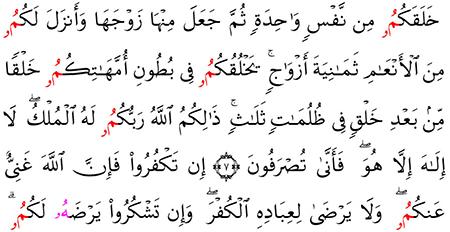 خَلَقَكُمُۥ مِن نَّفْسٍ وَٰحِدَةٍ ثُمَّ جَعَلَ مِنْهَا زَوْجَهَا وَأَنزَلَ لَكُمُۥ
مِنَ ٱلْأَنْعَٰمِ ثَمَٰنِيَةَ أَزْوَٰجٍ ۚ يَخْلُقُكُمُۥ فِى بُطُونِ أُمَّهَٰتِكُمُۥ خَلْقًا
مِّنۢ بَعْدِ خَلْقٍ فِى ظُلُمَٰتٍ ثَلَٰثٍ ۚ ذَٰلِكُمُ ٱللَّهُ رَبُّكُمُۥ لَهُ ٱلْمُلْكُ ۖ لَا
إِلَٰهَ إِلَّا هُوَ ۖ فَأَنَّىٰ تُصْرَفُونَ ۝٧ إِن تَكْفُرُوا۟ فَإِنَّ ٱللَّهَ غَنِىٌّ
عَنكُمُۥ ۖ وَلَا يَرْضَىٰ لِعِبَادِهِ ٱلْكُفْرَ ۖ وَإِن تَشْكُرُوا۟ يَرْضَهُۥ لَكُمُۥ ۗ